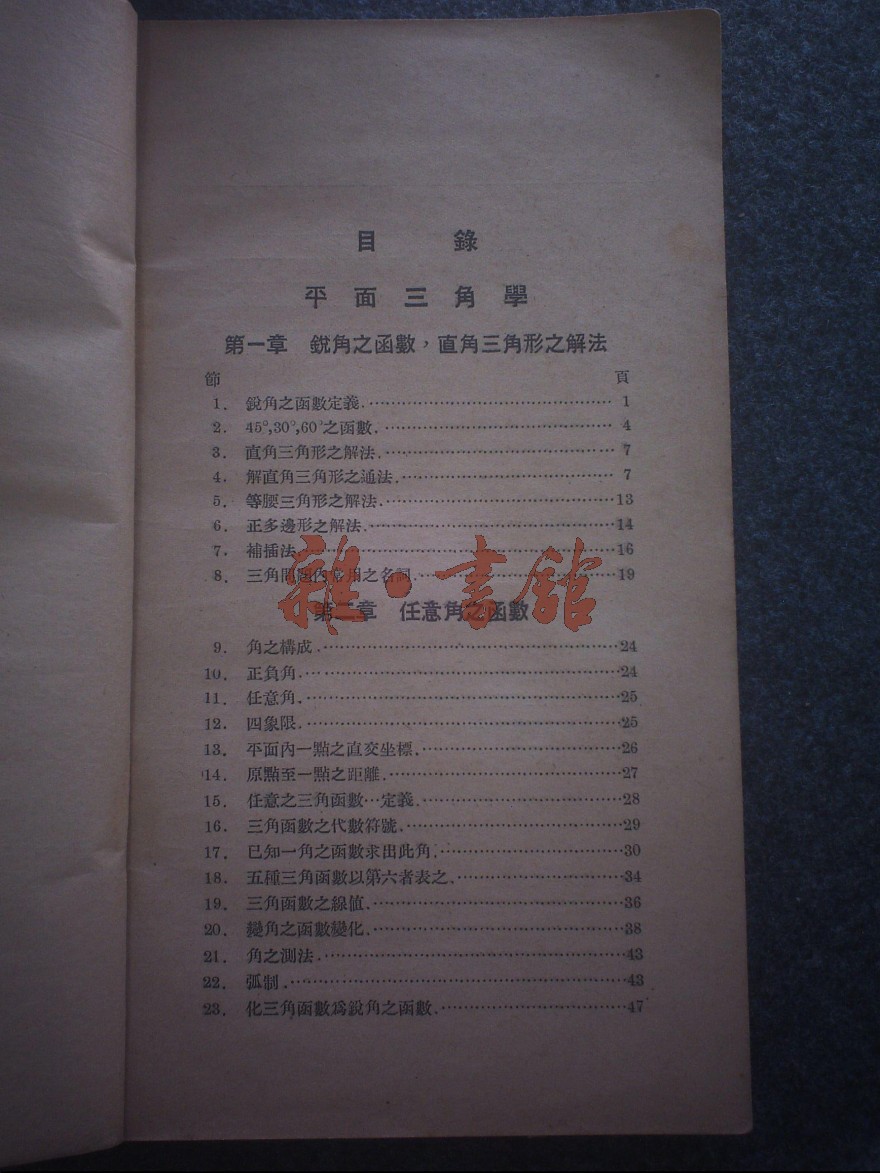 目 錄
平面三角學
第一章 銳角之函數，直角三角形之解法
節 頁
1. 銳角之函數定義.…………………………………… 1
2. 45°,30°,60°之函數.…………………………………… 4
3. 直角三角形之解法.…………………………………… 7
4. 解直角三角形之通法.…………………………………… 7
5. 等腰三角形之解法.……………………………………13
6. 正多邊形之解法.……………………………………14
7. 補插法.……………………………………16
8. 三角問題內常用之名詞.……………………………………19
雜·書館
第二章 任意角之函數
9. 角之構成.……………………………………24
10. 正負角.……………………………………24
11. 任意角.……………………………………25
12. 四象限.……………………………………25
13. 平面內一點之直交坐標.……………………………………26
14. 原點至一點之距離.……………………………………27
15. 任意之三角函數…定義.……………………………………28
16. 三角函數之代數符號.……………………………………29
17. 已知一角之函數求出此角.……………………………………30
18. 五種三角函數以第六者表之.……………………………………34
19. 三角函數之線值.……………………………………36
20. 變角之函數變化.……………………………………38
21. 角之測法.……………………………………43
22. 弧制.……………………………………43
23. 化三角函數爲銳角之函數.……………………………………47